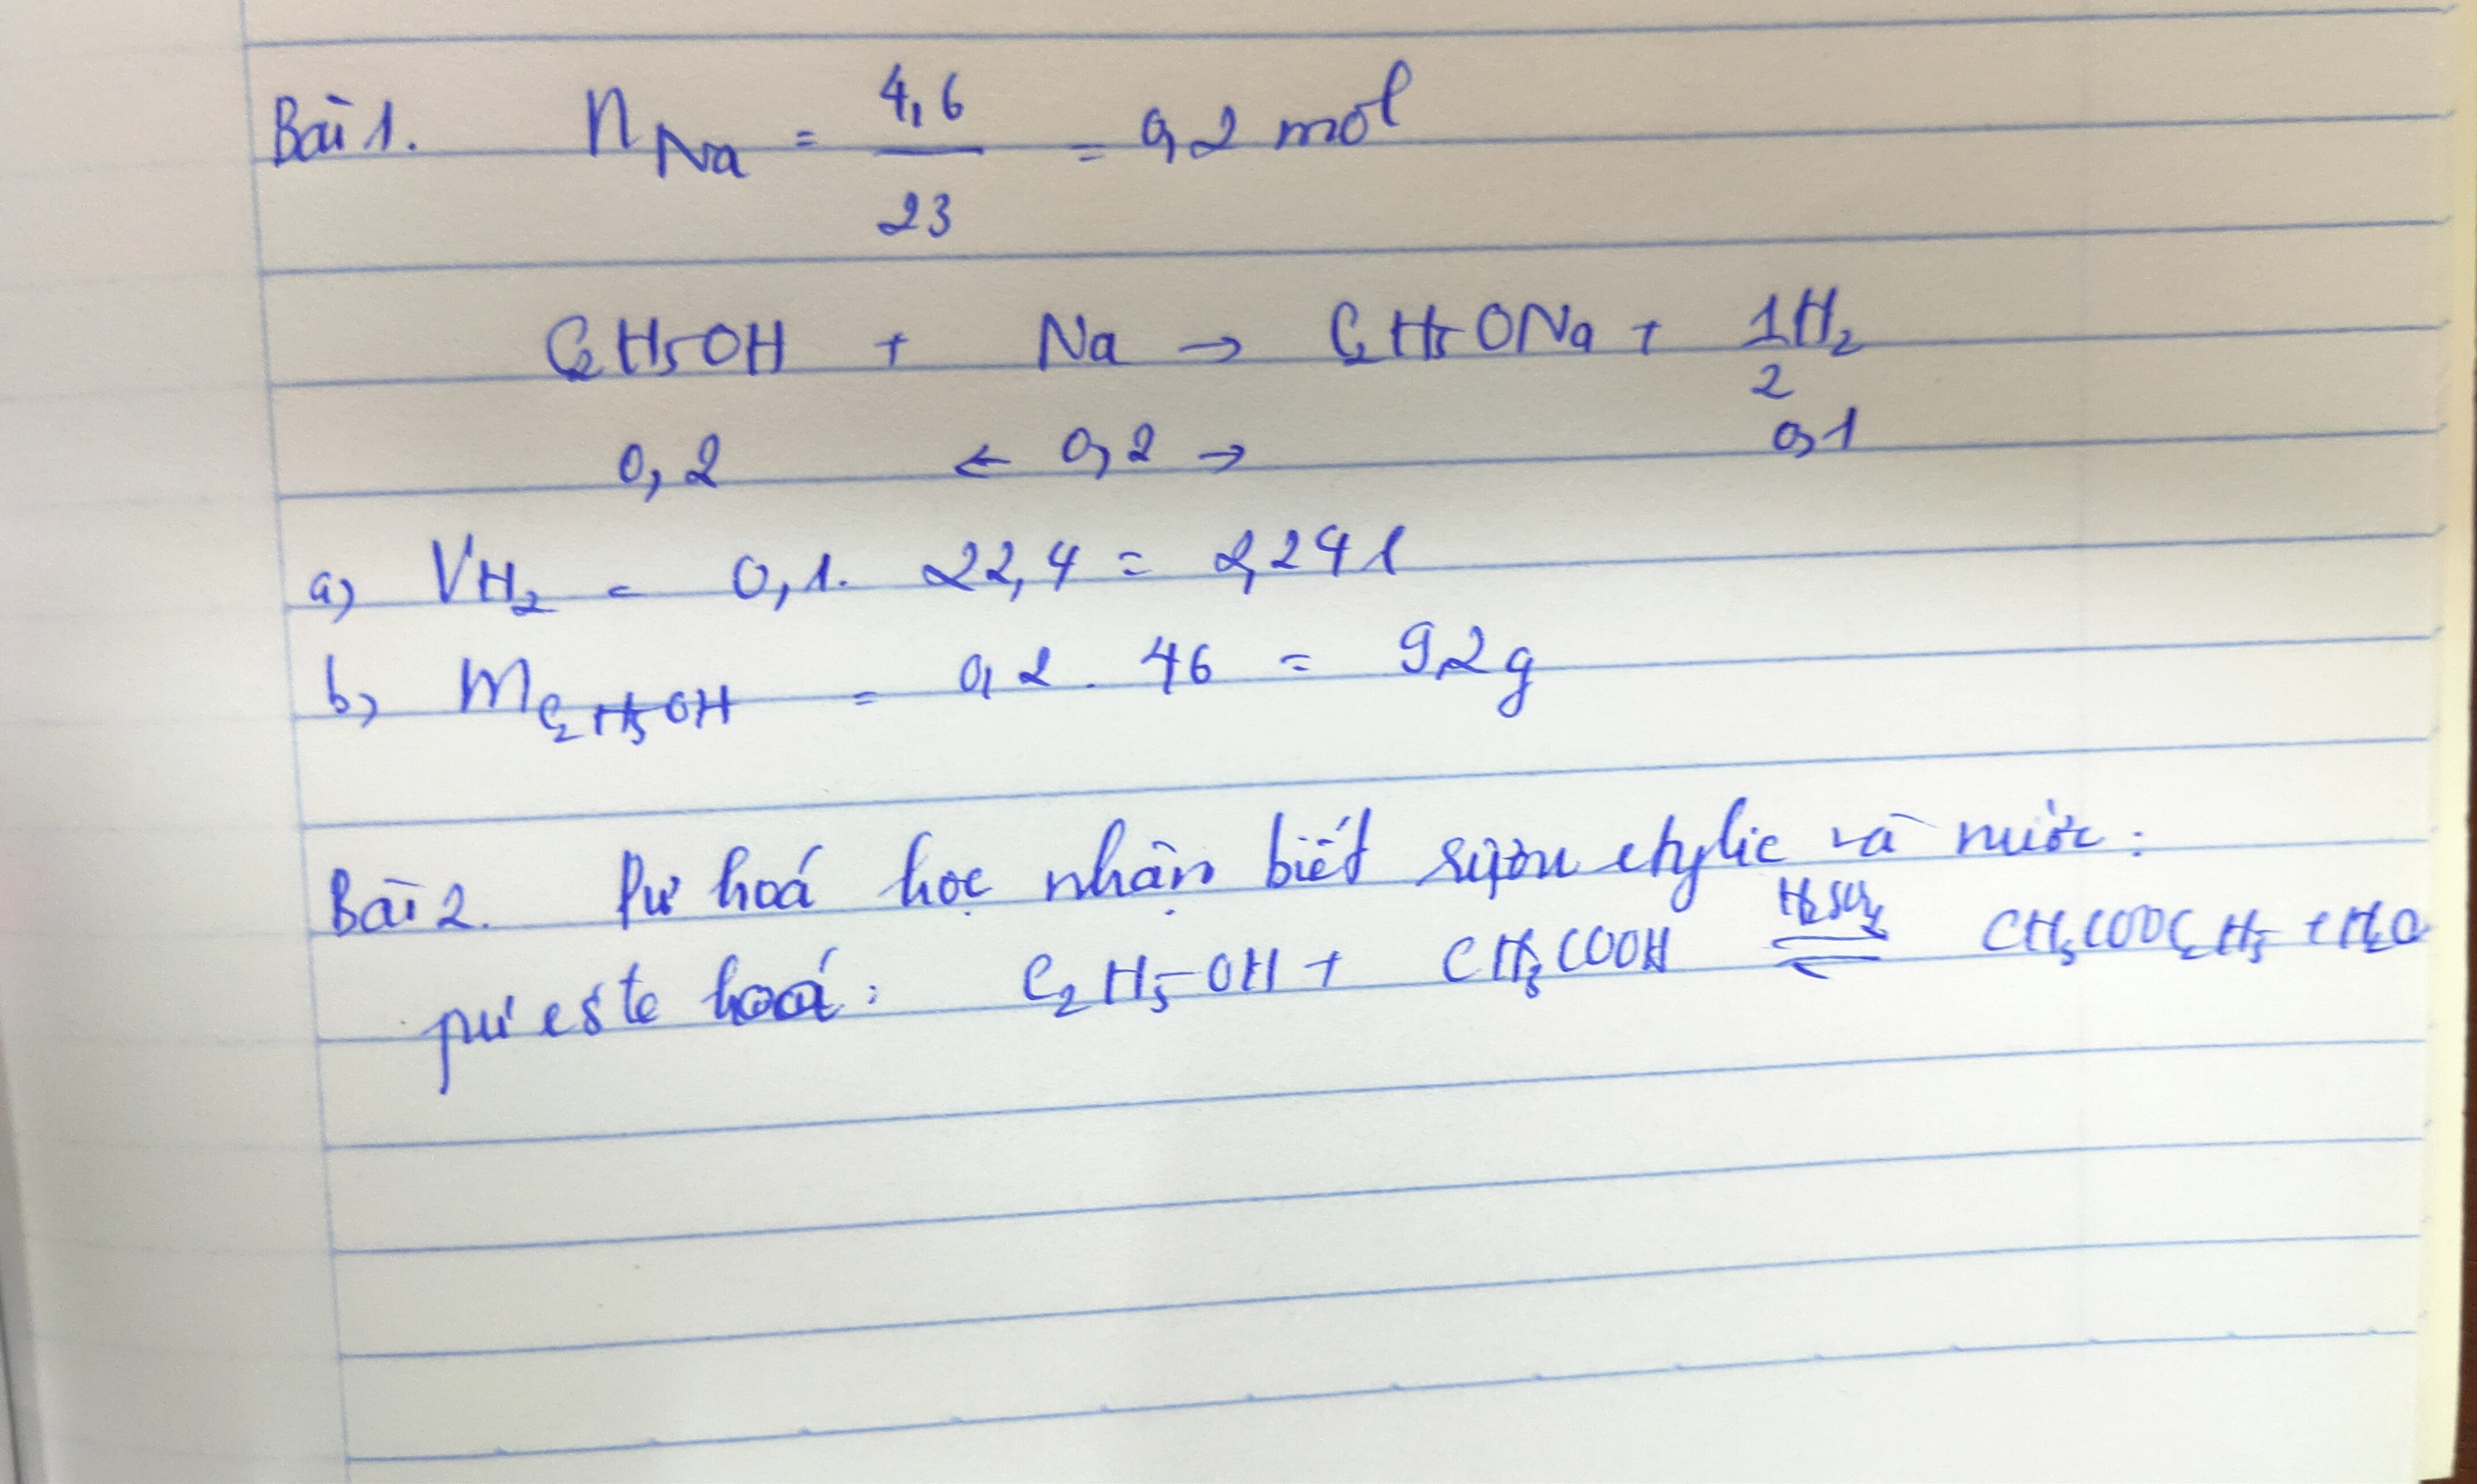 Bài 1. n Na = 4,6 / 23 = 0,2 mol
C2H5OH + Na → C2H5ONa + 1/2 H2
0,2 ← 0,2 → 0,1
a) VH2 = 0,1. 22,4 = 2,24 l
b) mC2H5OH = 0,2 . 46 = 9,2g
Bài 2. Pư hoá học nhận biết rượu etylic và nước:
pư este hoá: C2H5-OH + CH3COOH ⇌ (H2SO4) CH3COOC2H5 + H2O